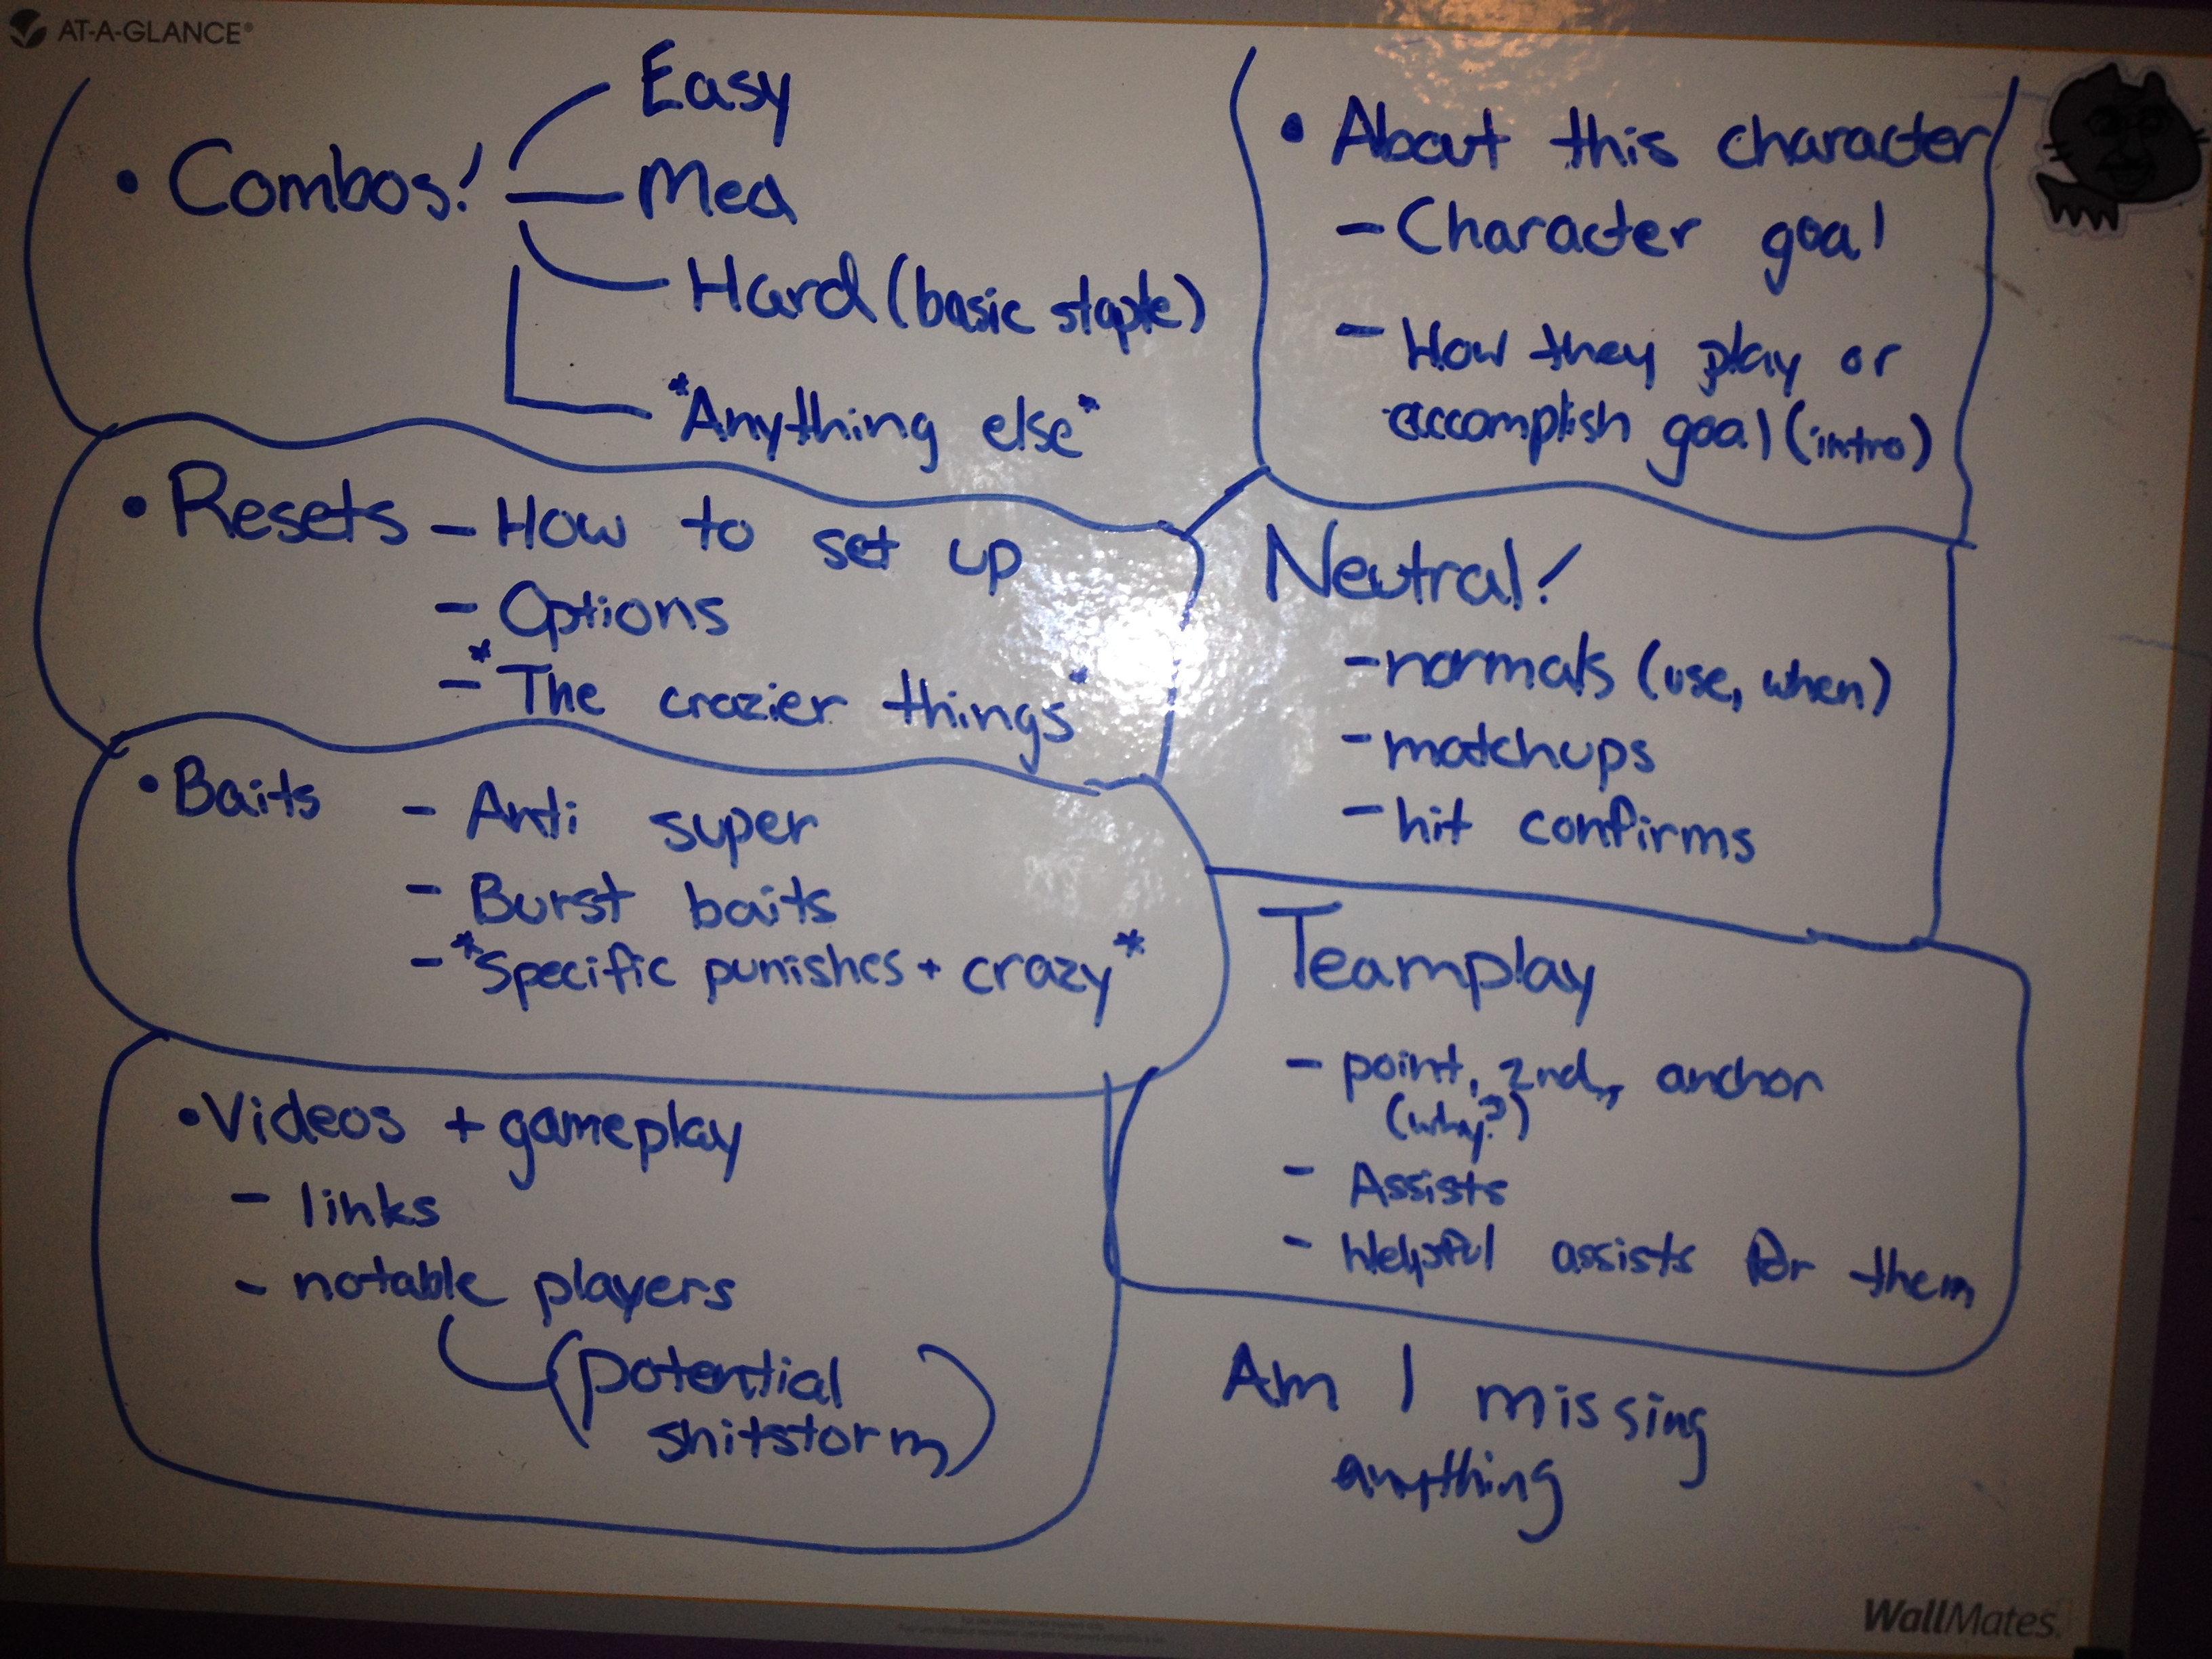 AT-A-GLANCE®
• Combos!
Easy
Med
Hard (basic staple)
*Anything else*
• Resets - How to set up
- Options
- *The crazier things*
• Baits - Anti super
- Burst baits
- *Specific punishes + crazy*
• Videos + gameplay
- links
- notable players
(potential
shitstorm)
• About this character
- Character goal
- How they play or
accomplish goal (intro)
Neutral!
- normals (use, when)
- matchups
- hit confirms
Teamplay
- point, 2nd, anchor
(why?)
- Assists
- Helpful assists for them
Am I missing
anything
WallMates.